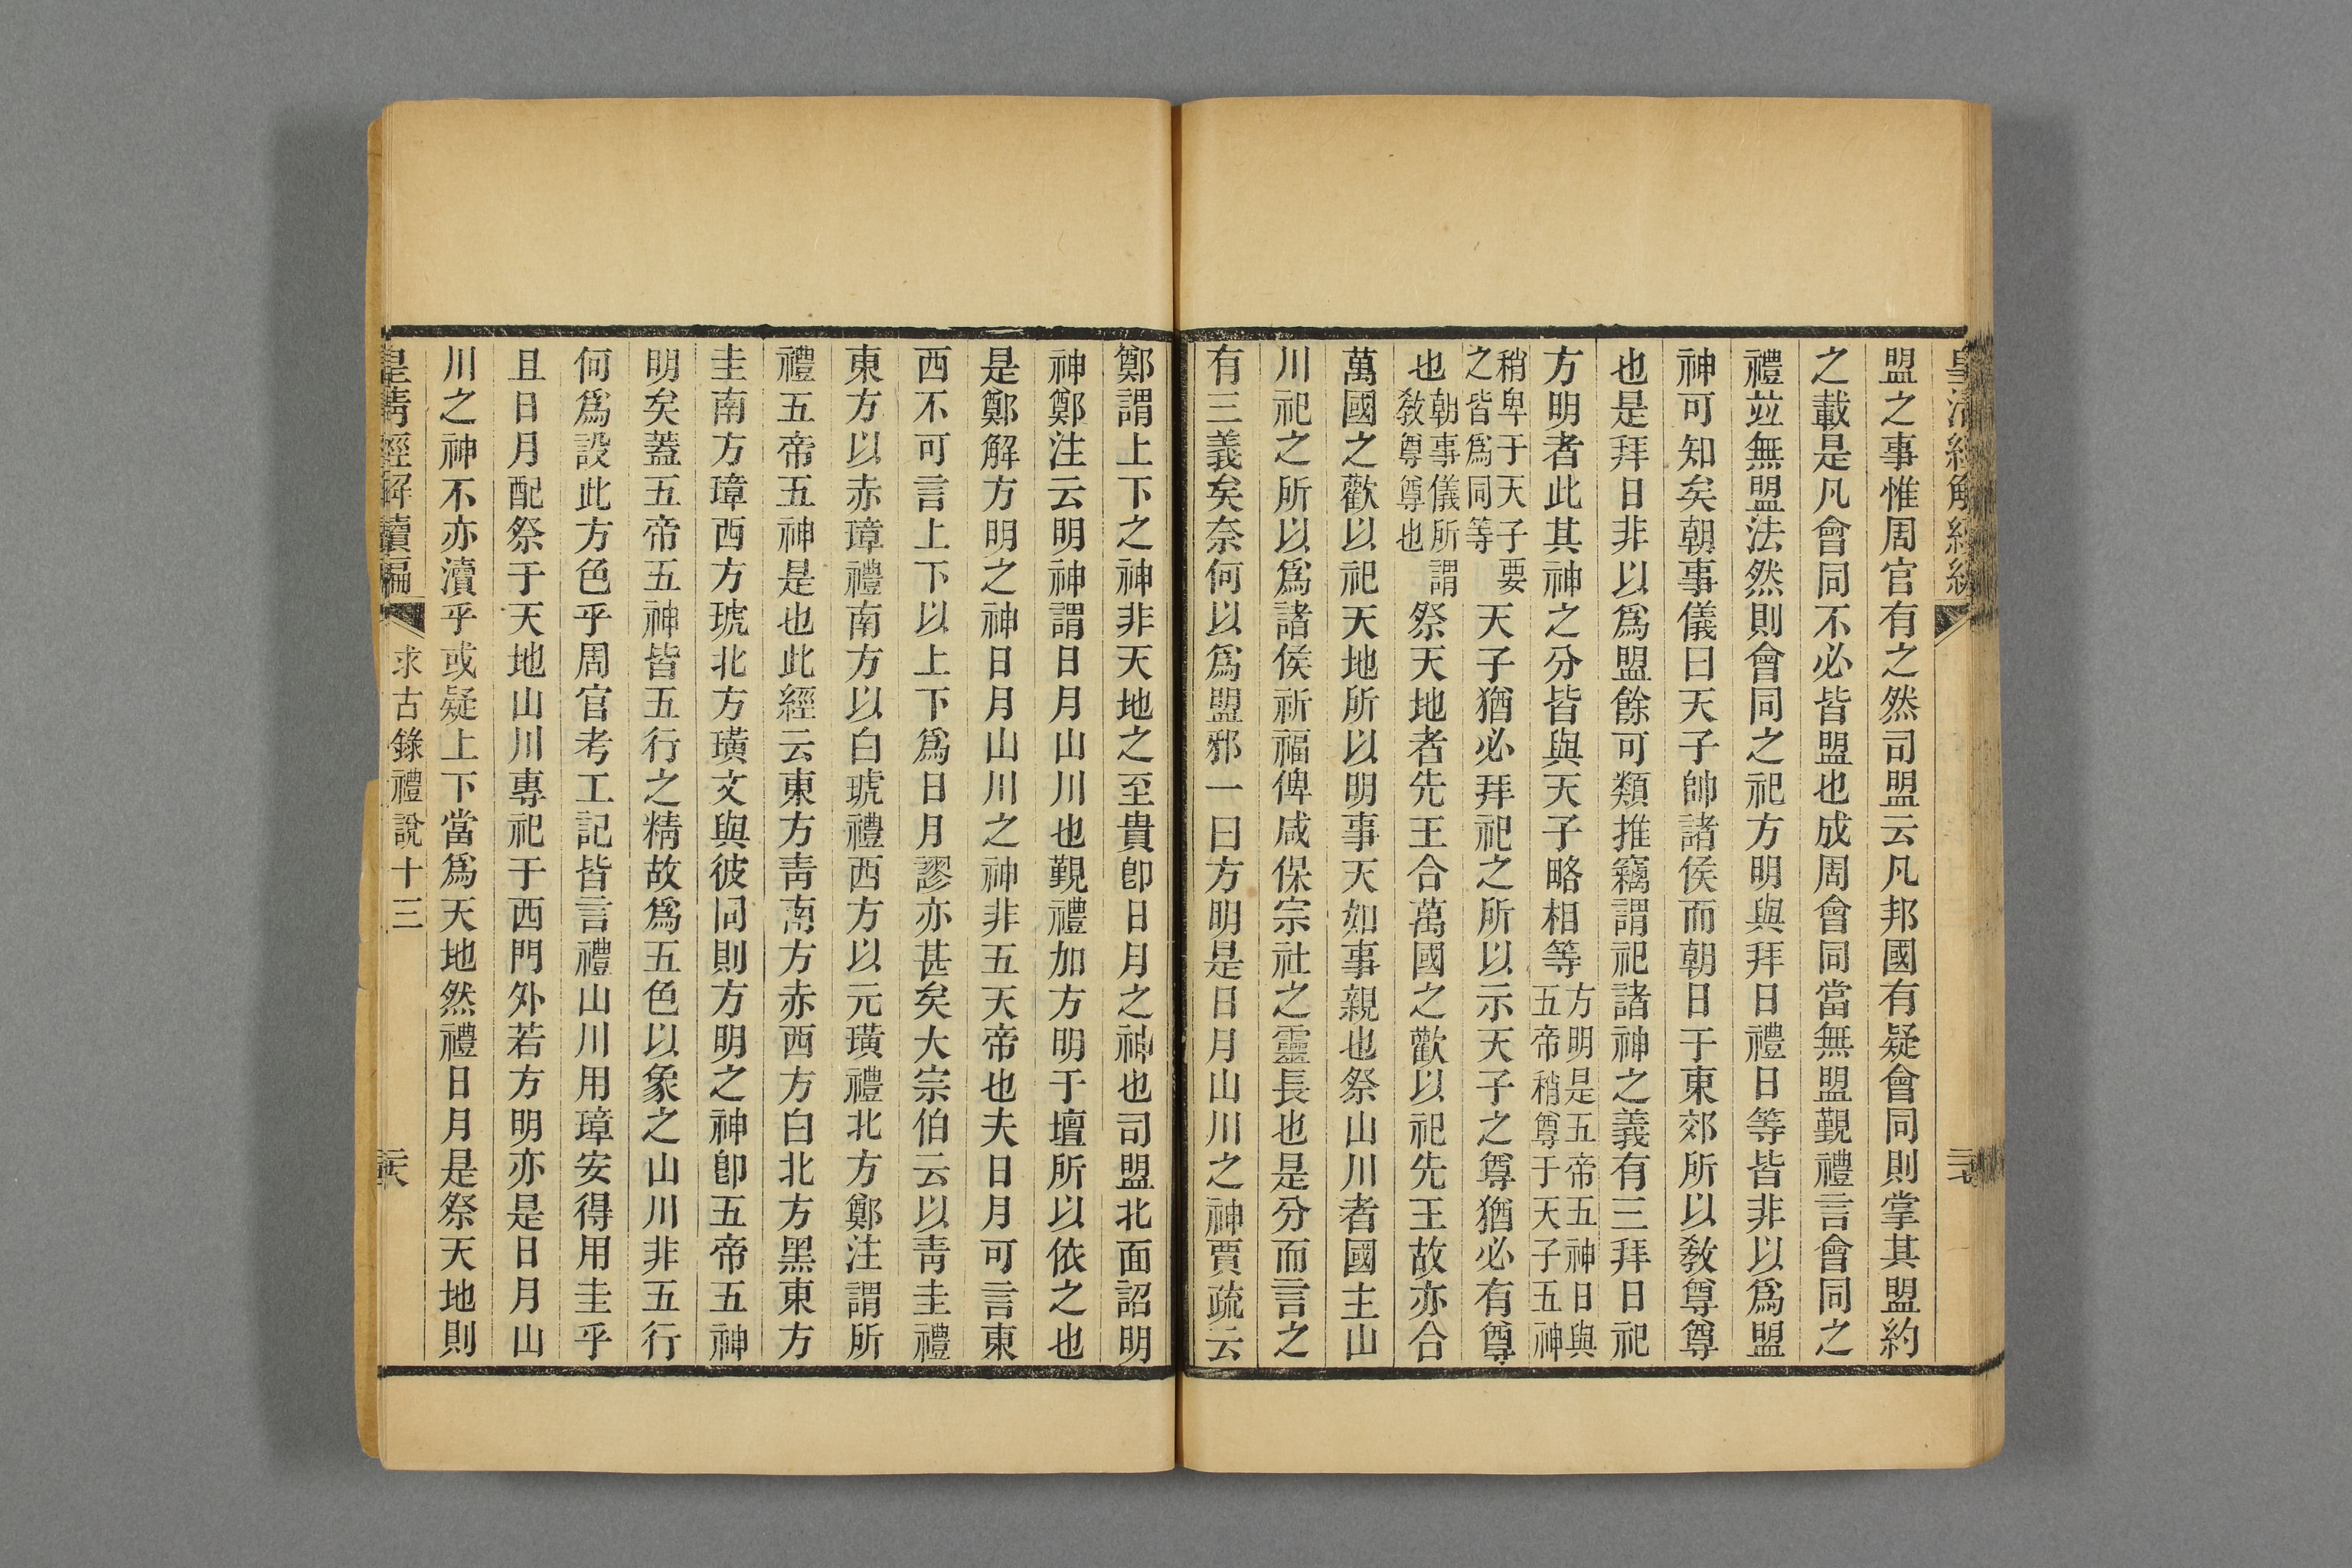 盟之事惟周官有之然司盟云凡邦國有疑會同則掌其盟約
之載是凡會同不必皆盟也成周會同當無盟覲禮言會同之
禮竝無盟法然則會同之祀方明與拜日禮日等皆非以爲盟
神可知矣朝事儀曰天子帥諸侯而朝日于東郊所以敎尊尊
也是拜日非以爲盟餘可類推竊謂祀諸神之義有三拜日祀
方明者此其神之分皆與天子略相等方明是五帝五神日與五帝稍尊于天子五神
稍卑于天子要之皆爲同等天子猶必拜祀之所以示天子之尊猶必有尊
也朝事儀所謂敎尊尊也祭天地者先王合萬國之歡以祀先王故亦合
萬國之歡以祀天地所以明事天如事親也祭山川者國主山
川祀之所以爲諸侯祈福俾咸保宗社之靈長也是分而言之
有三義矣奈何以爲盟邪一曰方明是日月山川之神賈疏云
鄭謂上下之神非天地之至貴卽日月之神也司盟北面詔明
神鄭注云明神謂日月山川也覲禮加方明于壇所以依之也
是鄭解方明之神日月山川之神非五天帝也夫日月可言東
西不可言上下以上下爲日月謬亦甚矣大宗伯云以靑圭禮
東方以赤璋禮南方以白琥禮西方以元璜禮北方鄭注謂所
禮五帝五神是也此經云東方靑南方赤西方白北方黑東方
圭南方璋西方琥北方璜文與彼同則方明之神卽五帝五神
明矣蓋五帝五神皆五行之精故爲五色以象之山川非五行
何爲設此方色乎周官考工記皆言禮山川用璋安得用圭乎
且日月配祭于天地山川專祀于西門外若方明亦是日月山
川之神不亦瀆乎或疑上下當爲天地然禮日月是祭天地則
皇淸經解續編
求古錄禮說十三